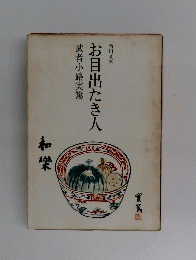 角川文庫
お目出たき人
武者小路実篤
和樂
實篤